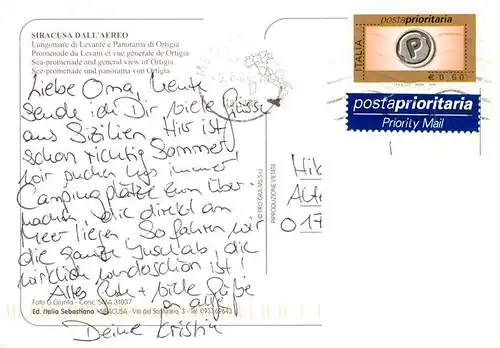 SIRACUSA DALL'AEREO
Lungomare di Levante e Panorama di Ortigia
Promenade du Levant et vue générale de Ortigia
Sea-promenade and general view of Ortigia
See-promenade und panorama von Ortigia
Liebe Oma, heute
sende ich Dir viele Grüsse
aus Sizilien. Hier ist
schon richtig Sommer
wir suchen uns immer
Campingplätze zum Über-
nachten, die direkt am
Meer liegen. So fahren wir
die ganze Insel ab, die
wirklich wunderschön ist!
Alles Gute + viele Grüße
an alle
Deine Kristin
Foto G. Giunta - Conc. SMA 31037
Ed. Italia Sebastiano - SIRACUSA - Via del Santuario, 3 - Tel.
© PRO GRA MS S.r.l.
RIPRODUZIONE VIETATA
postaprioritaria
ITALIA
P
€ 0,60
postaprioritaria
Priority Mail
Hik
017